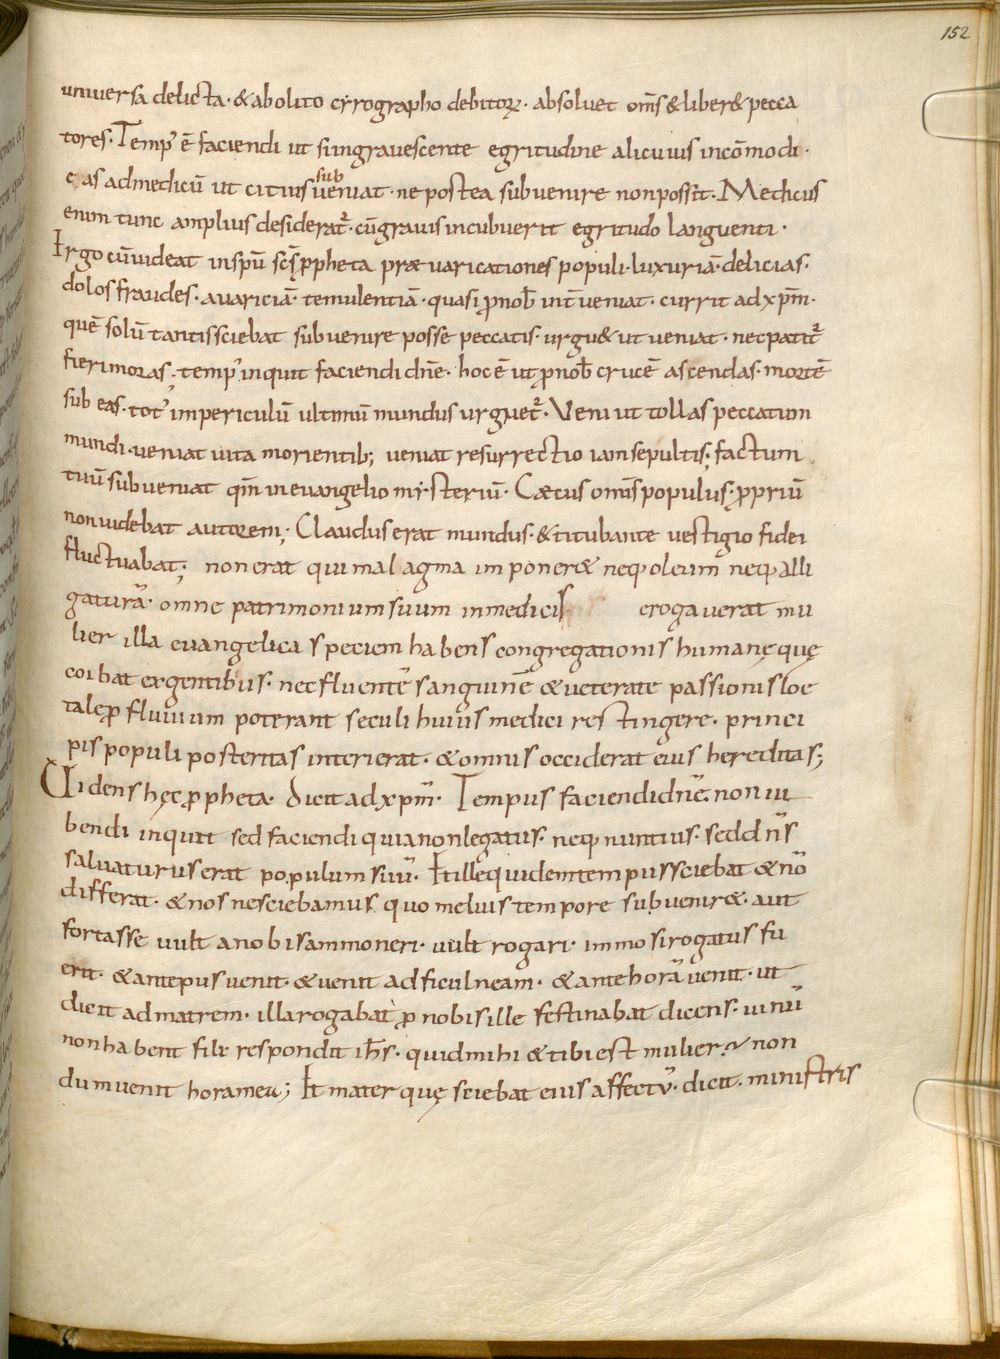 152
universa delicta · & abolito cyrographo debitorꝝ · absoluet om̅s & liber& pecca
tores · Temp᾽ ē faciendi ut si ingrauescente egritudine alicuius incōmodi ·
e as ad medicū ut citius sub ueniat · ne postea subuenire non possit · Medicus
enim tunc amplius desiderat᷑ · cū grauis incubuerit egritudo languenti ·
Irgo cū uideat in sp̅u sc̅s ꝓpheta præuaricationes populi · luxuriā · delicias ·
dolos fraudes · auariciā · temulentiā · quasi ꝓ nob̅ int̅ueniat · currit ad xp̅m ·
quē solū tantis sciebat subuenire posse peccatis · urgu& ut ueniat · nec patit᷑
fieri moras ; temp᾽ inquit faciendi dn̅e · hoc ē ut ꝓ nob̅ crucē ascendas · mortē
sub eas · tot᾽ in periculū ultimū mundus urguet᷑ · Veni ut tollas peccatum
mundi · ueniat uita morientib; ueniat resurrectio iam sepultis ; factum
tuū subueniat qm̅ in euangelio mysteriū · Cæcus om̅s populus · ꝓpriū
non uidebat autorem ; Claudus erat mundus · & titubante uestigio fidei
fluctuabat ; non erat qui malagma inponer& neq; oleum neq; alli
gaturā · omne patrimonium suum in medicis erogauerat mu
lier illa euangelica speciem habens congregationis humanę quę
coibat ex gentibus · nec fluentē sanguinē & ueterate passionis loe
talę ꝓfluuium poterant seculi huius medici restingere · princi
pis populi posteritas interierat · & omnis occiderat eius hereditas ;
Uidens hęc ꝓpheta · dicit ad xp̅m · Tempus faciendi dn̅e · non iu
bendi inquit sed faciendi quia non legatus · neq; nuntius · sed dn̅s
saluaturus erat populum suū · Et ille quidem tempus sciebat & nō
differat · & nos nesciebamus quo melius tempore subuenir& · aut
fortasse uult a nobis ammoneri · uult rogari · immo si rogatus fu
erit · & ante pus uenit · & uenit ad ficulneam · & ante horā uenit · ut
dicit ad matrem · illa rogabat ꝓ nobis ille festinabat dicens · uinū
non habent fili respondit ih̅s · quid mihi & tibi est mulier · non
dum uenit hora mea ; Et mater quę sciebat eius affectū · dicit · ministris